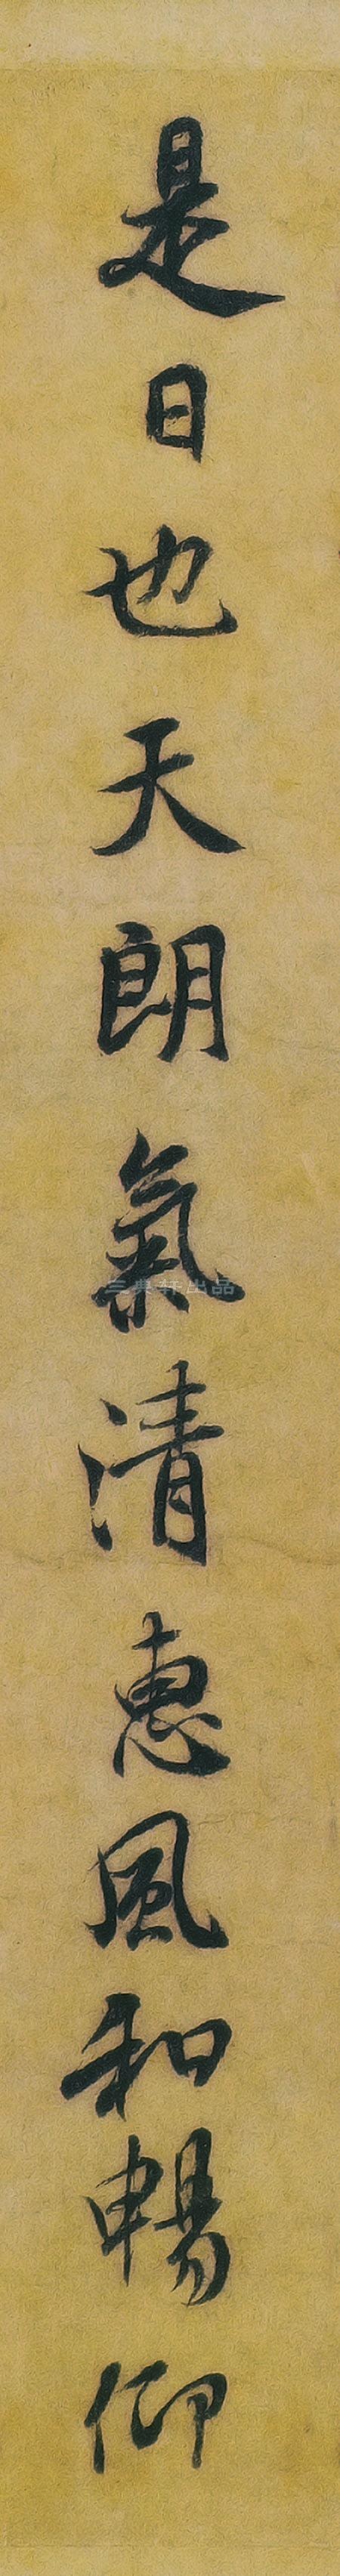 是日也天朗氣清惠風和暢仰
三典軒出品